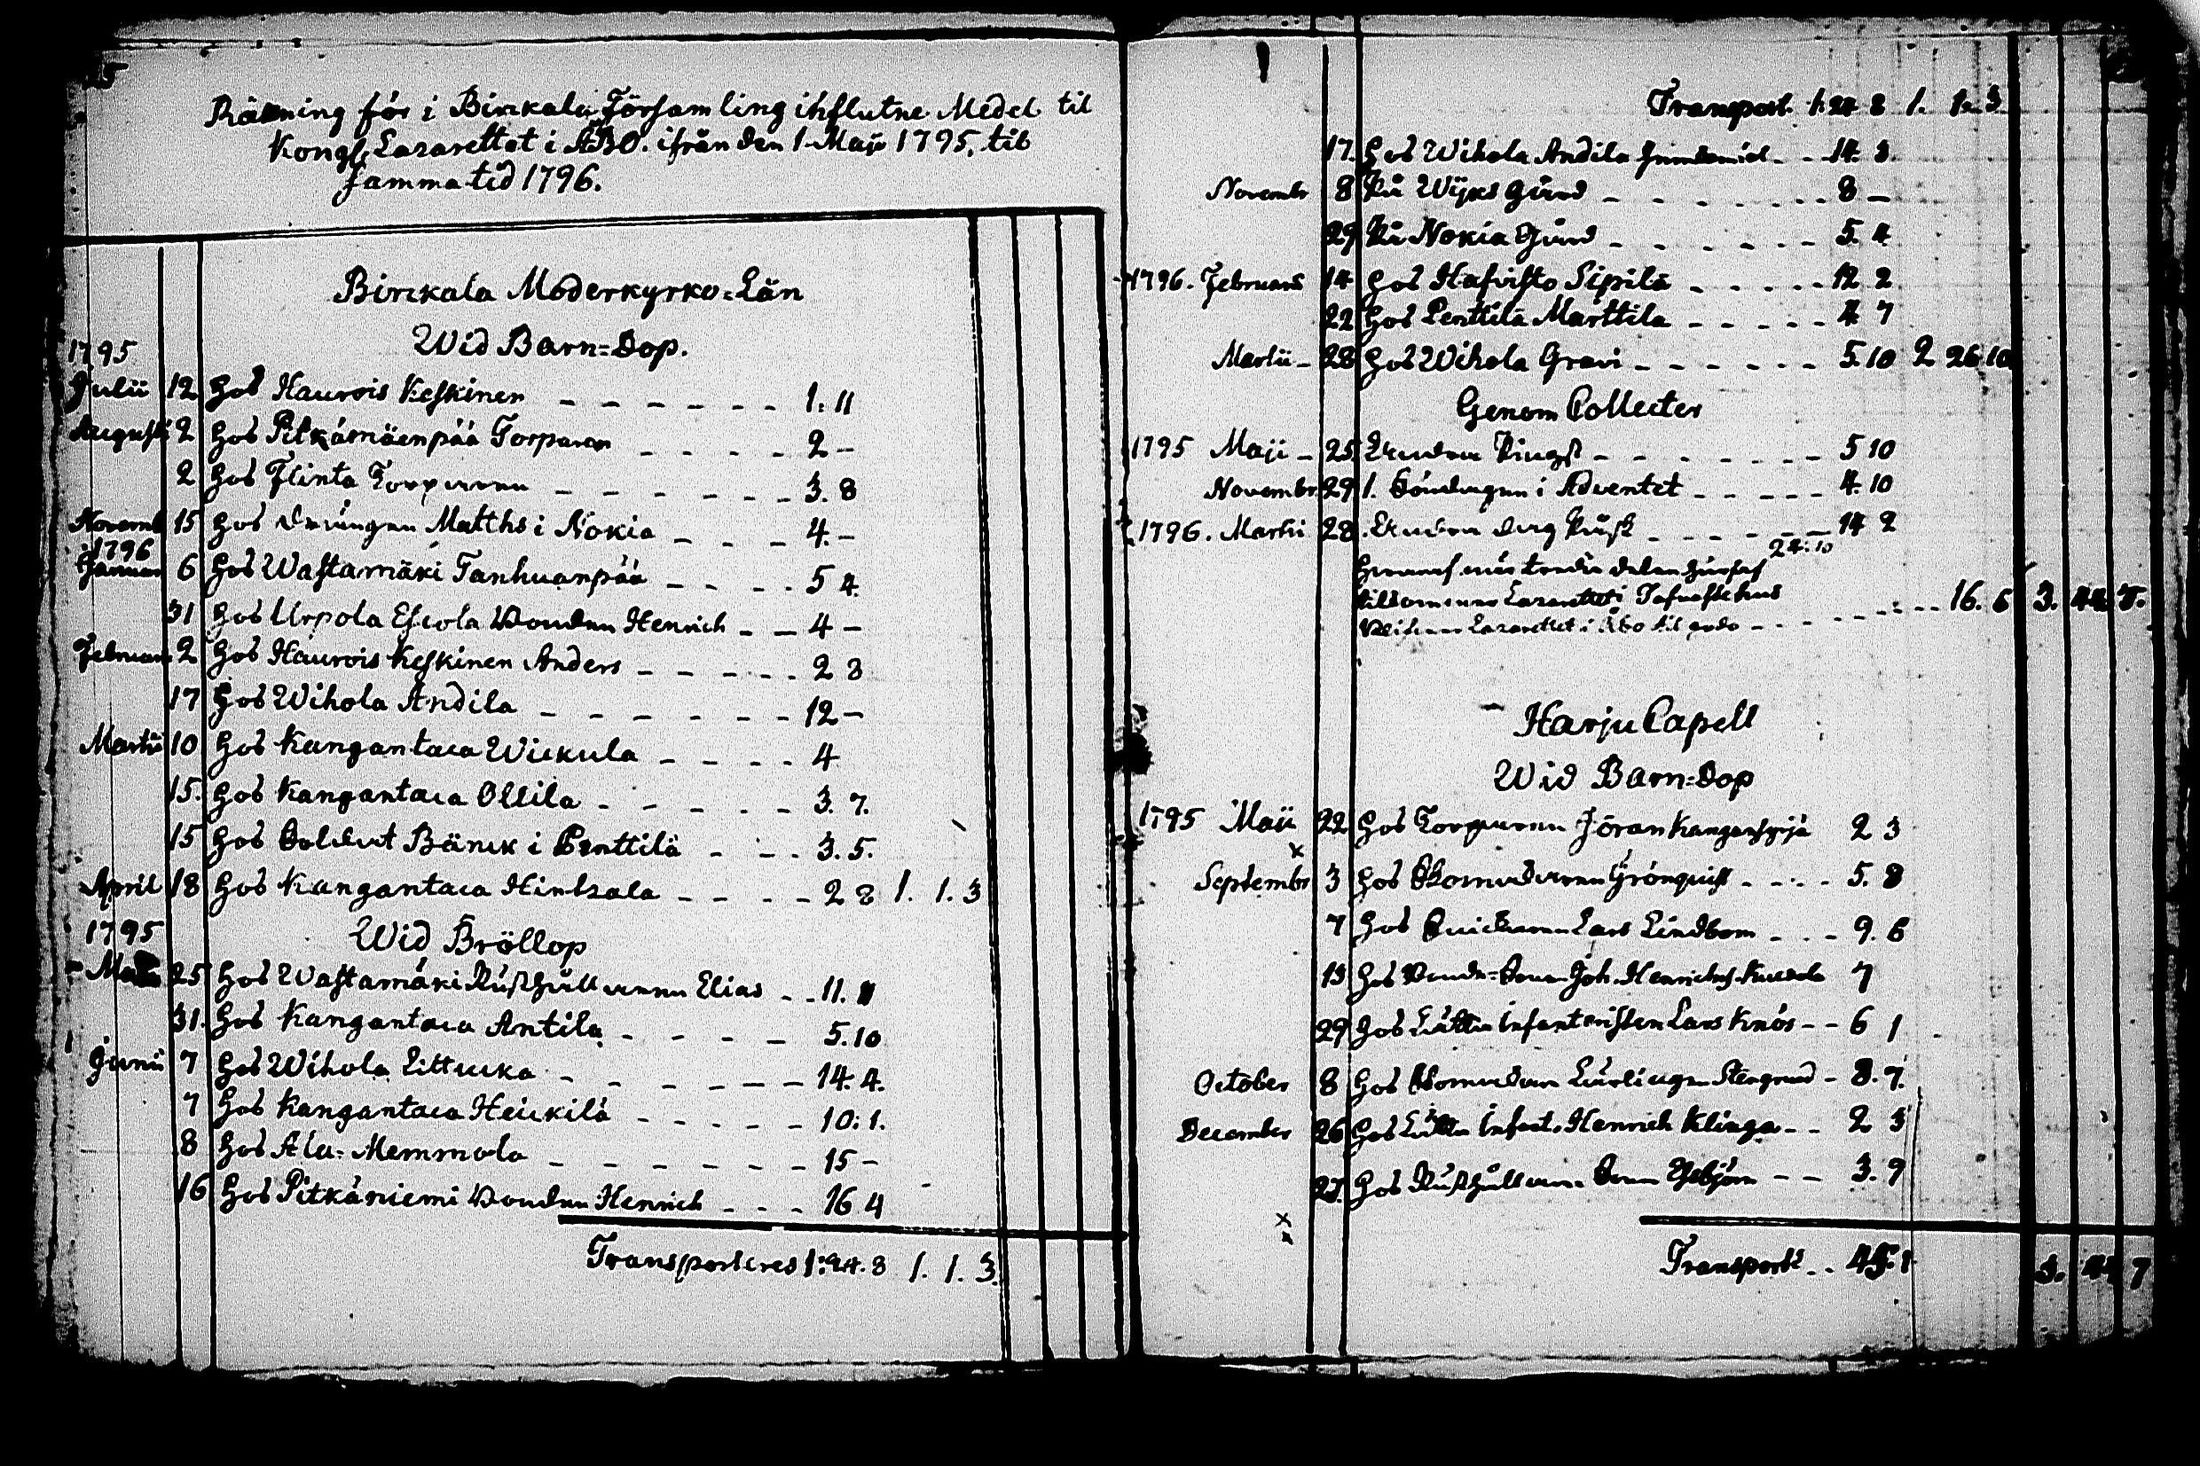 Räkning för i Birckala Församling influtne Medel til
Kongl. Lazarettet i ÅBO. ifrån den 1 Maji 1795, til
samma tid 1796.
Birckala Moderkyrko-Län
Wid Barn-Dop.
1795
Julii 12 Hos Haurois Keskinen - - - - - - 1: 11
Augusti 2 Hos Pitkämäenpää Torparen - - - - 2 -
2 Hos Flinta Torparen - - - - - - 3. 8
Novemb 15 Hos drängen Matths i Nokia - - - 4. -
1796
Januar 6 Hos Wastamäki Tanhuanpää - - - - 5 4.
31 Hos Urpola Escola Bonden Henrich - - 4 -
Februari 2 Hos Haurois Keskinen Anders - - - - - 2 8
17 Hos Wihola Andila - - - - - - 12 -
Martii 10 Hos Kangantaca Wickula - - - - 4
15. Hos Kangantaca Ollila - - - - - 3. 7.
15 Hos Soldat Bänck i Penttilä - - - 3. 5.
April 18 Hos Kangantaca Hintzala - - - - 2 8 1. 1. 3
1795 Wid Bröllop
25 Hos Wastamäki Rusthållaren Elias - - 11.
31. Hos Kangantaca Antila - - - - 5. 10
Junii 7 Hos Wihola Littucka - - - - - - 14. 4.
7 Hos Kangantaca Heickilä - - - - - 10: 1.
8 Hos Ala-Memmola - - - - - - 15 -
16 Hos Pitkäniemi Bonden Henrich - - - 16 4
Transporteres 1: 24. 8 1. 1. 3.
Transport 1. 24 8 1. 1. 3
17. Hos Wihola Andila - - 14. 3.
Novembr 8 På Wijks gård - - - - - - - 8 -
29 På Nokia Gård - - - - - - 5. 4
1796. Februari 14 Hos Hafvisto Sipilä - - - - - 12 2
22 Hos Penttilä Marttila - - - - - 4 7
Martii - 28 Hos Wihola Gravi - - - - - - 5. 10 2 26 10
Genom Collecter
1795 Maji - 25 Annan Pingst - - - - - - - 5 10
Novembr 29 1. Söndagen i Adventet - - - - - 4. 10
1796. Martii 28. Annan dag Påsk - - - - - - 14 2
24: 10
Häraf när tredje delen
tillkommer Lazarettet i Tafvastehus
Lazarettet i Åbo til godo - - - - - - - - 16. 6 3. 44. 7.
Harju Capell
Wid Barn-Dop
1795 Maii 22 Hos Torparen Jöran 2 3
Septembr 3 Hos Skomakaren Grönquist - - - - 5. 8
7 Hos Lars Lindbom - - - 9. 6
13 Hos Joh. Henrichs. 7
29 Hos Lätta Infanteristen Lars Knös - - 6 1
October 8 Hos Skomakare Lärlingen Stengrund - 8. 7.
December 26 Hos Lätta Infant. Henrich Klinga - - 2 3
27. Hos Rusthållaren - - 3. 9
Transport . . 45: 1 3. 44 7